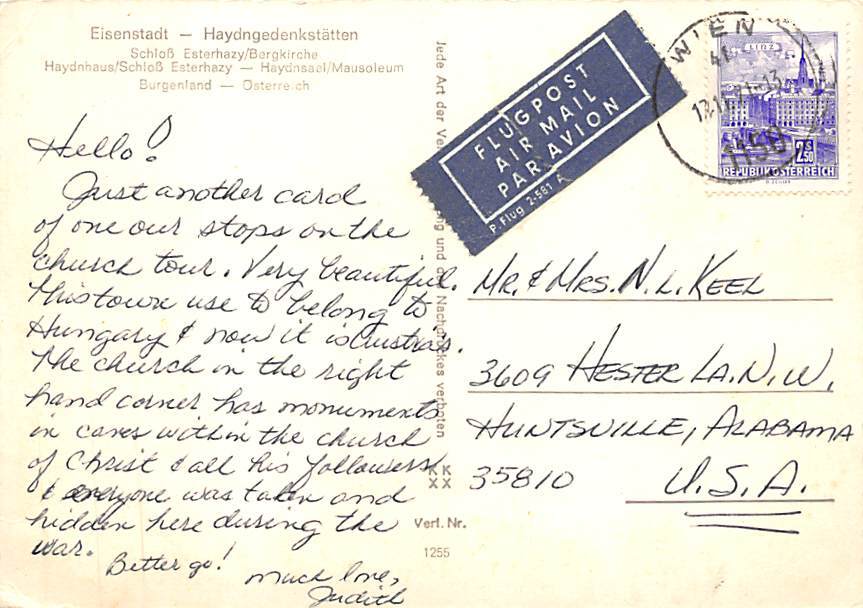 Eisenstadt — Haydngedenkstätten
Schloß Esterhazy/Bergkirche
Haydnhaus/Schloß Esterhazy — Haydnsaal/Mausoleum
Burgenland — Österreich
Hello!
Just another card
of one our stops on the
church tour. Very beautiful.
This town use to belong to
Hungary & now it is Austria's.
The church in the right
hand corner has monuments
in caves within the church
of Christ & all his followers
& everyone was taken and
hidden here during the
war.
Better go!
much love,
Judith
Jede Art der
und
Nachdruckes verboten
KK
XX
Verl. Nr.
1255
FLUGPOST
AIR MAIL
PAR AVION
P. Flug 2-581 A
WIEN
1150
LINZ
2S50
REPUBLIK ÖSTERREICH
MR. & MRS. N. L. KEEL
3609 HESTER LA. N.W.
HUNTSVILLE, ALABAMA
35810 U.S.A.